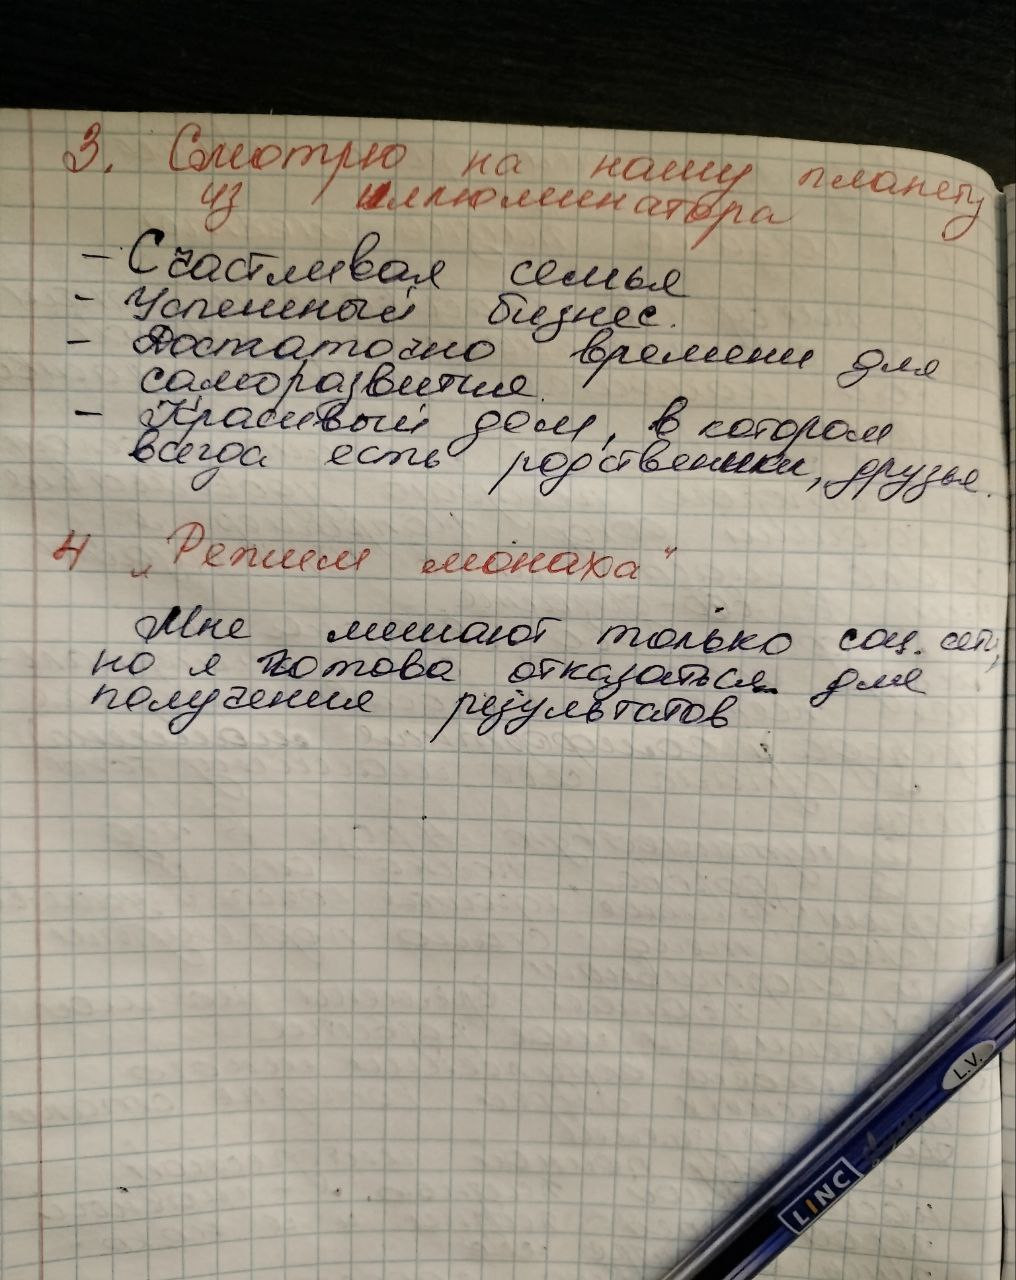 3. Смотрю на нашу планету
из иллюминатора
- Счастливая семья
- Успешный бизнес.
- Достаточно времени для
саморазвития.
- Красивый дом, в котором
всегда есть родственники, друзья.
4 „Режим монаха"
Мне мешают только соц. сети,
но я готова отказаться для
получения результатов
L.V.
LINC